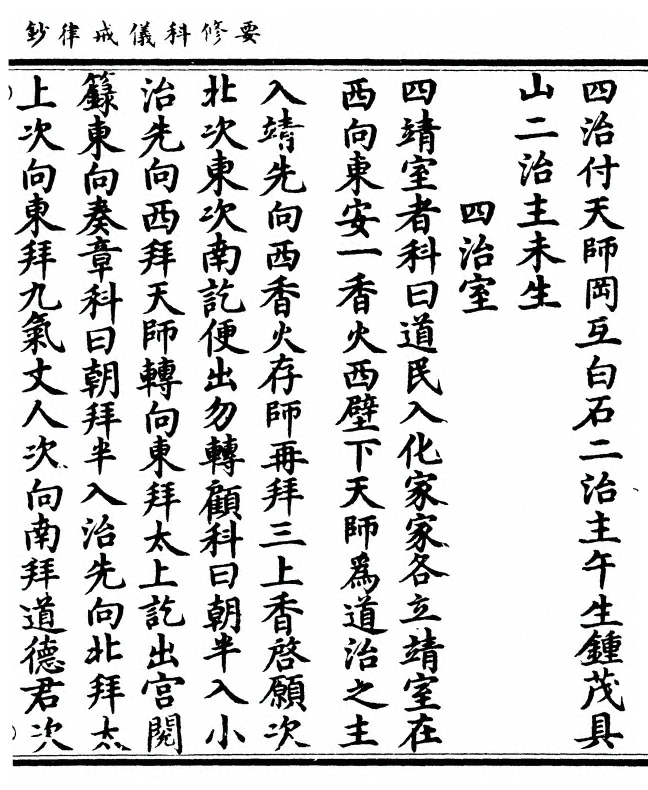 要修科儀戒律鈔
四治付天師岡互白石二治主午生鍾茂具
山二治主未生
四治室
四靖室者科曰道民入化家家各立靖室在
西向東安一香火西壁下天師為道治之主
入靖先向西香火存師再拜三上香啓願次
北次東次南訖便出勿轉顧科曰朝半入小
治先向西拜天師轉向東拜太上訖出宮閱
籙東向奏章科曰朝拜半入治先向北拜太
上次向東拜九氣丈人次向南拜道德君次